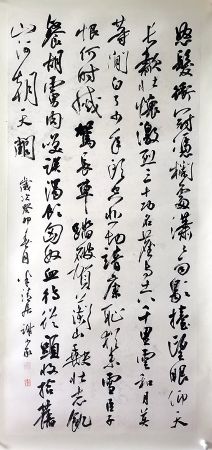 怒髮衝冠憑欄處瀟瀟雨歇抬望眼仰天
長嘯壯懷激烈三十功名塵與土八千里雲和月莫
等閒白了少年頭空悲切靖康恥猶未雪臣子
恨何時滅駕長車踏破賀蘭山缺壯志飢
餐胡虜肉笑談渴飲匈奴血待從頭收拾舊
山河朝天闕
歲次